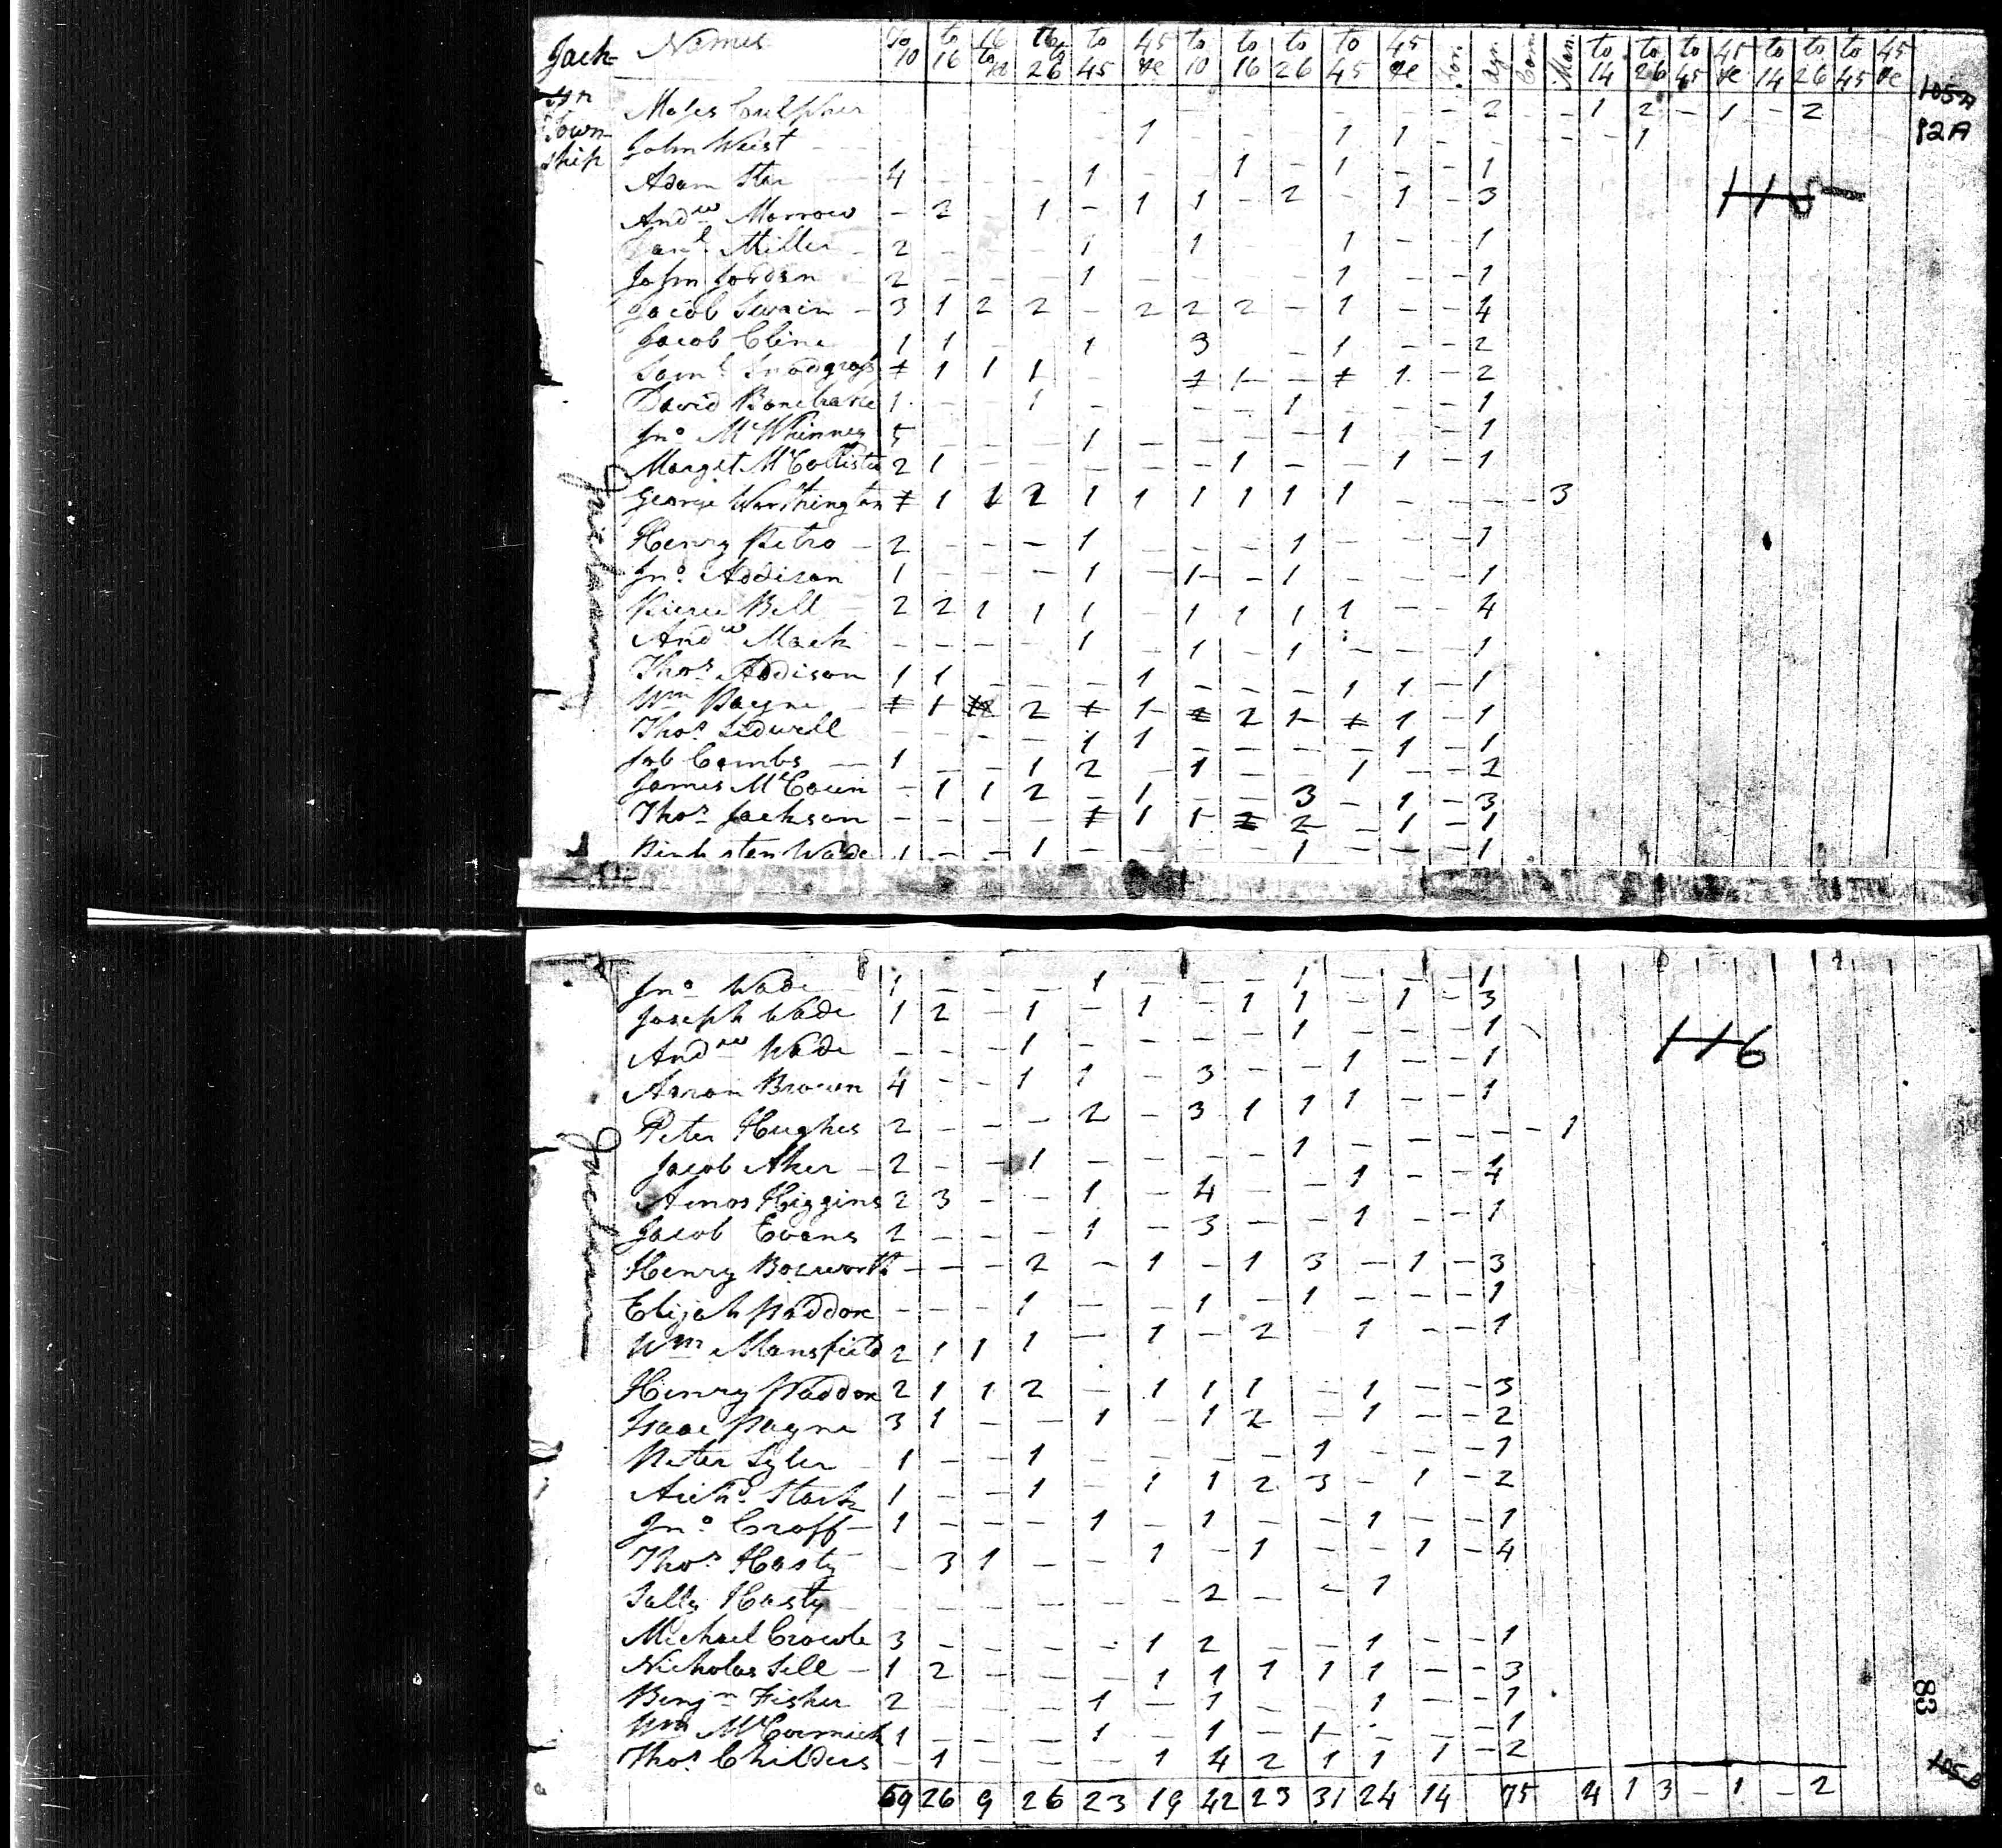 Jack- Names to 10 to 16 16 to 18 16 to 26 to 45 45 &c to 10 to 16 to 26 to 45 45 &c For. Agr. Com Man to 14 to 26 to 45 45 &c to 14 to 26 to 45 45 &c
105A
son Moses - - - - - 2 - - 1 2 - 1 - 2
Town- John Weist - - - - - 1 1 1 - - - - 1
82A
ship Adam Star 4 - - - 1 - 1 - 1 - - 1
Andw Morrow - 2 - 1 - 1 1 - 2 - 1 - 3
115
Miller 2 - - - 1 - 1 - - 1 - 1
John Jordan 2 - - - 1 - - - - 1 - - 1
Jacob Swain - 3 1 2 2 - 2 2 2 - 1 - - 4
Jacob Cline 1 1 - 1 3 - 1 - - 2
Saml Snodgrass 1 1 1 - 1 - 1 - 2
David Bonebrake 1 - - 1 - - - 1 - - - 1
Jno McWhinney 5 - - - 1 - - - - 1 - - 1
Margit McCollister 2 1 - - - - - 1 - - 1 - 1
George Worthington 1 1 2 1 1 1 1 1 1 - - - - 3
Henry Petro - 2 - - - 1 - - - 1 - - - 1
Jno Addison 1 - - - 1 - 1 - 1 - - - 1
Pierce Bell 2 2 1 1 1 - 1 1 1 1 - - 4
Andw Mack - - - - 1 - 1 - 1 - - - 1
Thos Addison 1 1 - - - 1 - - - 1 1 - 1
Wm Payne - 1 2 1 2 1 1 - 1
Thos Sidwell - - - - 1 1 - - - - 1 - 1
Job Combs - 1 - - 1 2 - 1 - - 1 - - 2
James McCoun - 1 1 2 - 1 - - 3 - 1 - 3
Thos Jackson - - - - 1 1 2 - 1 - 1
Wade 1 - - 1 - - - - 1 - - - 1
Jackson
Jno Wade 1 - - - 1 - - - 1 - - - 1
Joseph Wade 1 2 - 1 - 1 - 1 1 - 1 - 3
116
Andw Wade - - - 1 - - - - 1 - - - 1
Aaron Brown 4 - - 1 1 - 3 - - 1 - - 1
Peter Hughes 2 - - - 2 - 3 1 1 1 - - 1
Jacob Aker - 2 - - 1 - - - - 1 - - - - - 1
Amos Higgins 2 3 - - 1 - 4 - - 1 - - 4
Jacob Evans 2 - - - 1 - 3 - - 1 - - 1
Henry Bosworth - - - 2 - 1 - 1 3 - 1 - 3
Elijah Paddox - - - 1 - - 1 - 1 - - - 1
Wm Mansfield 2 1 1 1 - 1 - 2 - 1 - - 1
Henry Paddox 2 1 1 2 - 1 1 1 - 1 - - 3
Isaac Payne 3 1 - - 1 - 1 2 - 1 - - 2
Peter Syler 1 - - 1 - - - - 1 - - - 1
Richd Stark 1 - - 1 - 1 1 2 3 - 1 - 2
Jno Croff - 1 - - - 1 - 1 - - 1 - - 1
Thos Hasty - 3 1 - - 1 - 1 - - 1 - 4
Sally Hasty - - - - - - 2 - - 1
Michael Crowle 3 - - - - 1 2 - - 1 - - 1
Nicholas Sell - 1 2 - - - 1 1 1 1 1 - - 3
Benjn Fisher 2 - - - 1 - 1 - - 1 - - 1
Wm McCormick 1 - - - 1 - 1 - 1 - - - 1
Thos Childers - 1 - - - 1 4 2 1 1 1 - 2
69 26 9 26 23 19 42 23 31 24 14 75 4 1 3 - 1 - 2
Jackson
83
105B